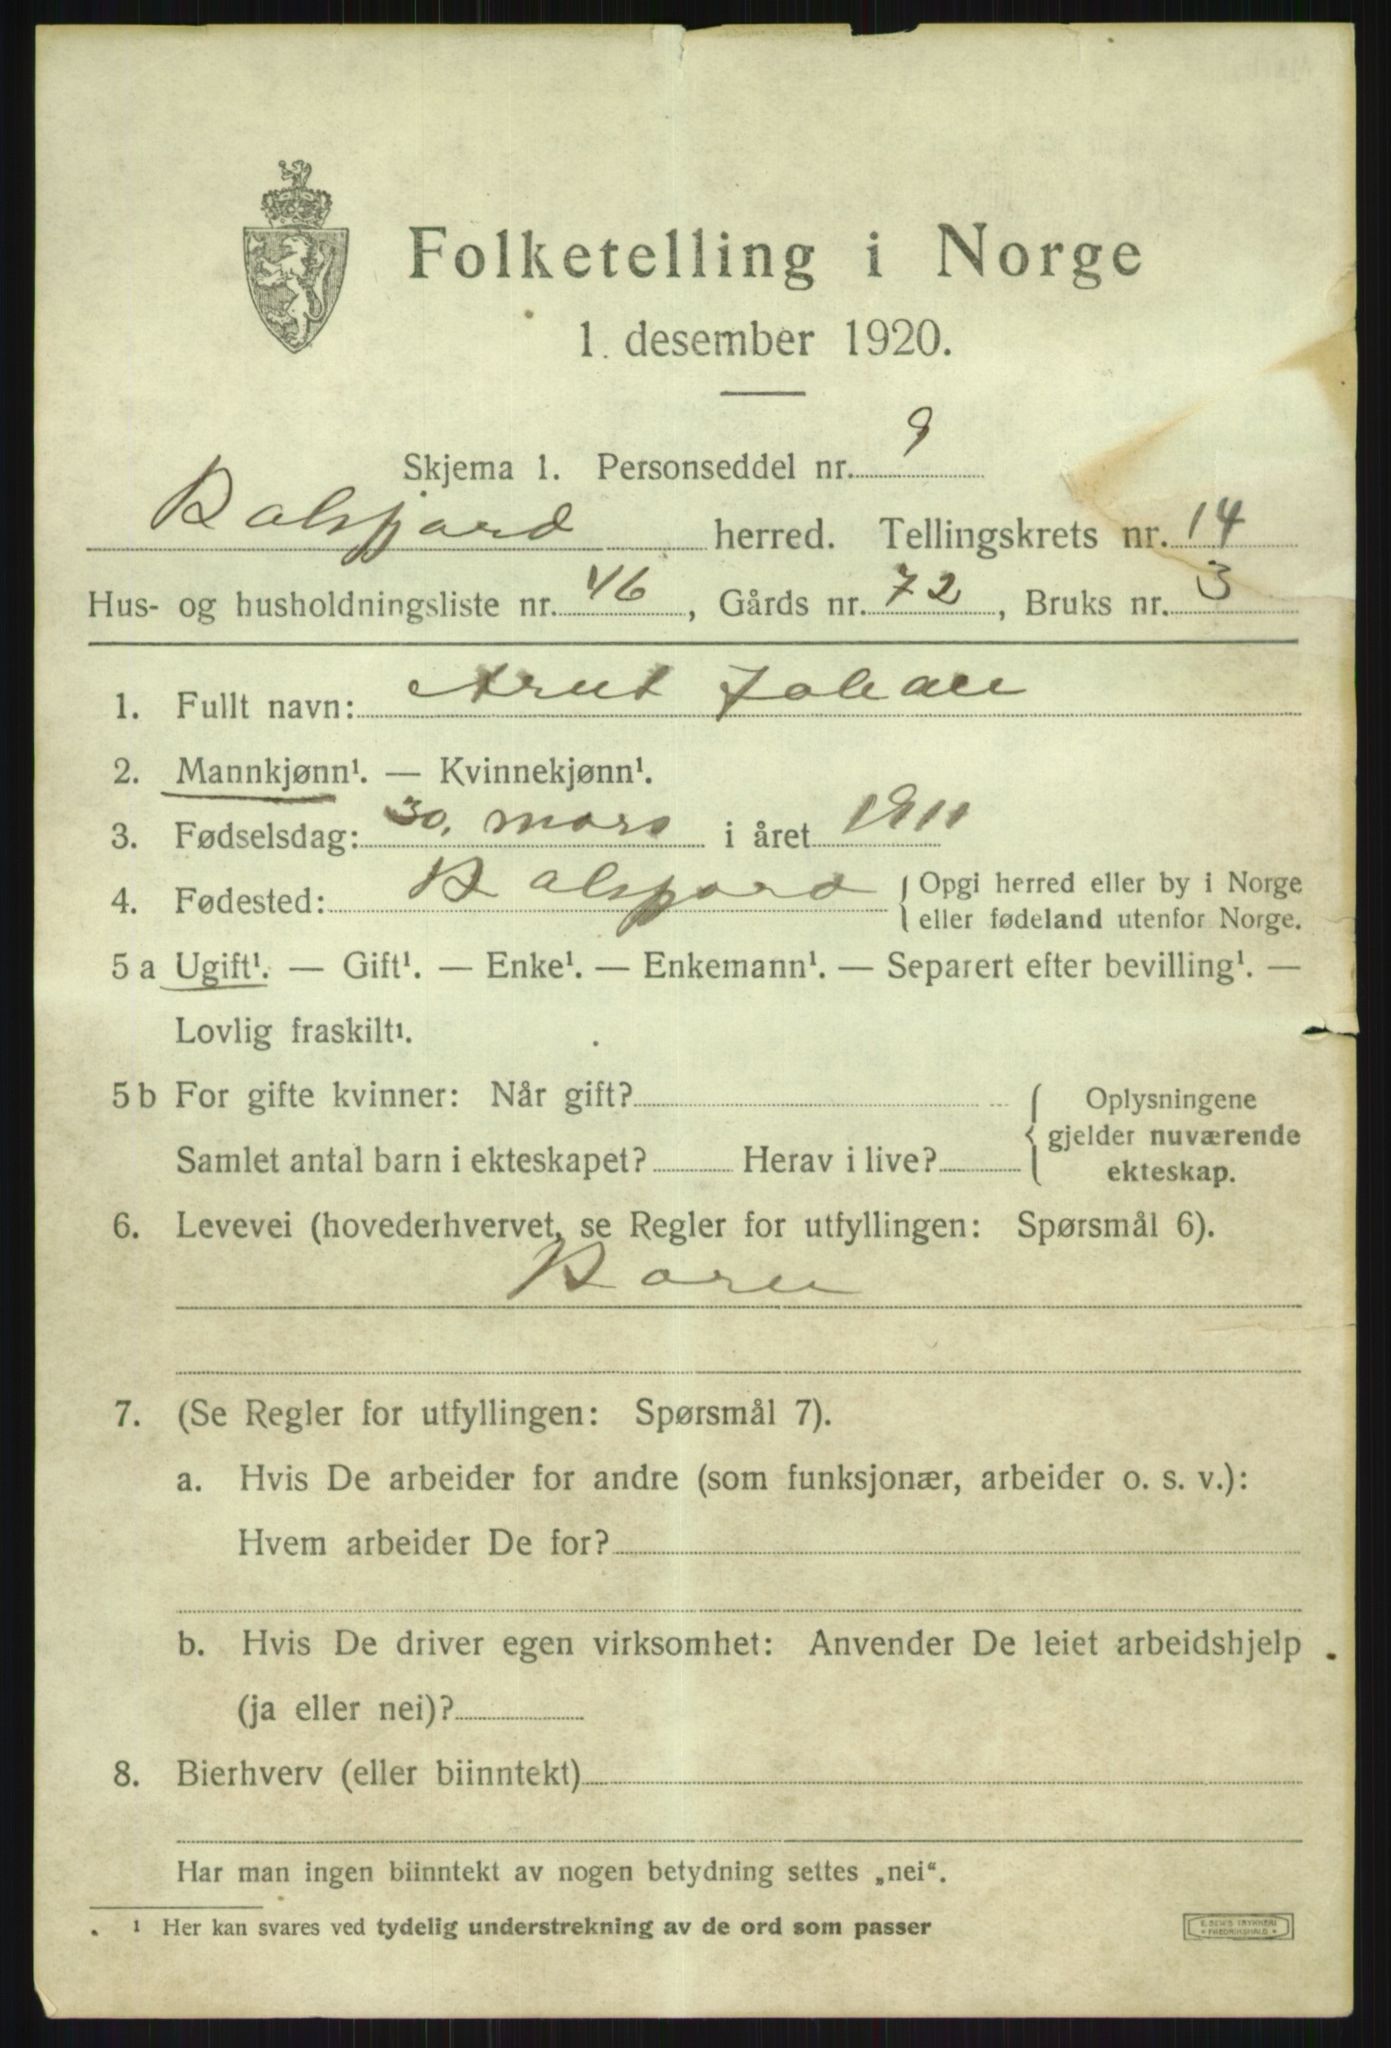 Folketelling i Norge
1. desember 1920.
Skjema 1. Personseddel nr. 9
Balsfjord herred. Tellingskrets nr. 14
Hus- og husholdningsliste nr. 46, Gårds nr. 72, Bruks nr. 3
1. Fullt navn: Arnt Johan
2. Mannkjønn¹. — Kvinnekjønn¹.
3. Fødselsdag: 30. mars i året 1911
4. Fødested: Balsfjord { Opgi herred eller by i Norge
eller fødeland utenfor Norge.
5 a Ugift¹. — Gift¹. — Enke¹. — Enkemann¹. — Separert efter bevilling¹. —
Lovlig fraskilt¹.
5 b For gifte kvinner: Når gift?
Samlet antal barn i ekteskapet? Herav i live?
{ Oplysningene
gjelder nuværende
ekteskap.
6. Levevei (hovederhvervet, se Regler for utfyllingen: Spørsmål 6).
Barn
7. (Se Regler for utfyllingen: Spørsmål 7).
a. Hvis De arbeider for andre (som funksjonær, arbeider o. s. v.):
Hvem arbeider De for?
b. Hvis De driver egen virksomhet: Anvender De leiet arbeidshjelp
(ja eller nei)?
8. Bierhverv (eller biinntekt)
Har man ingen biinntekt av nogen betydning settes „nei“.
¹ Her kan svares ved tydelig understrekning av de ord som passer
E. SEM'S TRYKKERI
FREDRIKSHALD